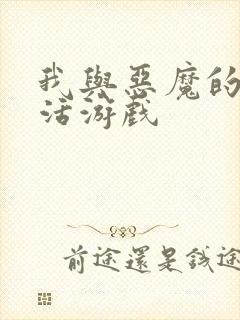 我與惡魔的
活游戲
前途還是錢途